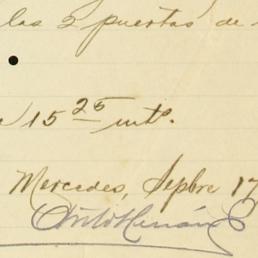 las 2 puertas de
15 25 mts.
Mercedes, Sepbre 17